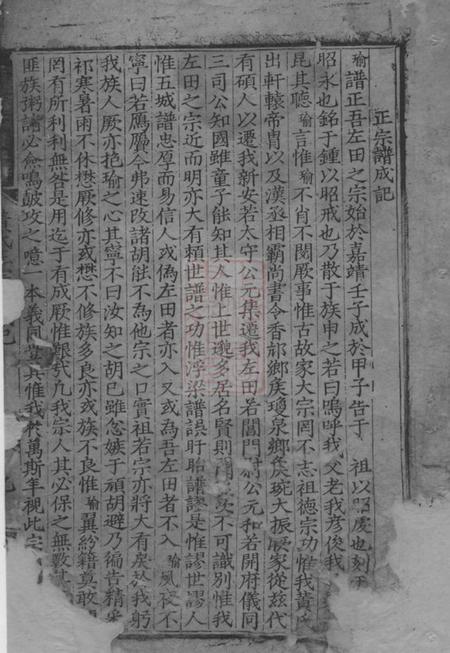 正宗譜成記
瑜譜正吾左田之宗始於嘉靖壬子成於甲子告于 祖以昭慶也刻于
昭永也銘于鍾以昭戒也乃散于族申之若曰嗚呼我父老我彥俊我
昆其聽瑜言惟瑜不肖不閱厥事惟古故家大宗罔不志祖德宗功惟我黃氏
出軒轅帝冑以及漢丞相霸尚書令香邟鄉侯瓊泉鄉侯琬大振厥家從茲代
有碩人以遷我新安若太守公元集遷我左田若閶門尉公元和若開府儀同
三司公知國雖童子能知其人惟上世邈多居名賢則不可識別惟我
左田之宗近而明亦大有賴世譜之功惟浮梁譜誤盱眙譜謬是惟謬世謬人
惟五城譜忠厚而易信人或偽左田者亦入又或為吾左田者不入 瑜風夜不
寧曰若鴈鴈今弗速改諸胡能不為他宗之口實祖若宗亦將大有戾於我躬
我族人厥亦抱瑜之心其寧不曰汝知之胡已雖怨嫉于頑胡避乃徧告精
祁寒暑雨不休懋厥修亦或懋不修族多良亦或族不良惟瑜翼紛籍莫敢
罔有所利利無咎是用迄于有成厥惟艱哉凡我宗人其必保之無數其
匪族粥譜必僉鳴鼓攻之噫一本義同其惟我於萬斯年視此宗